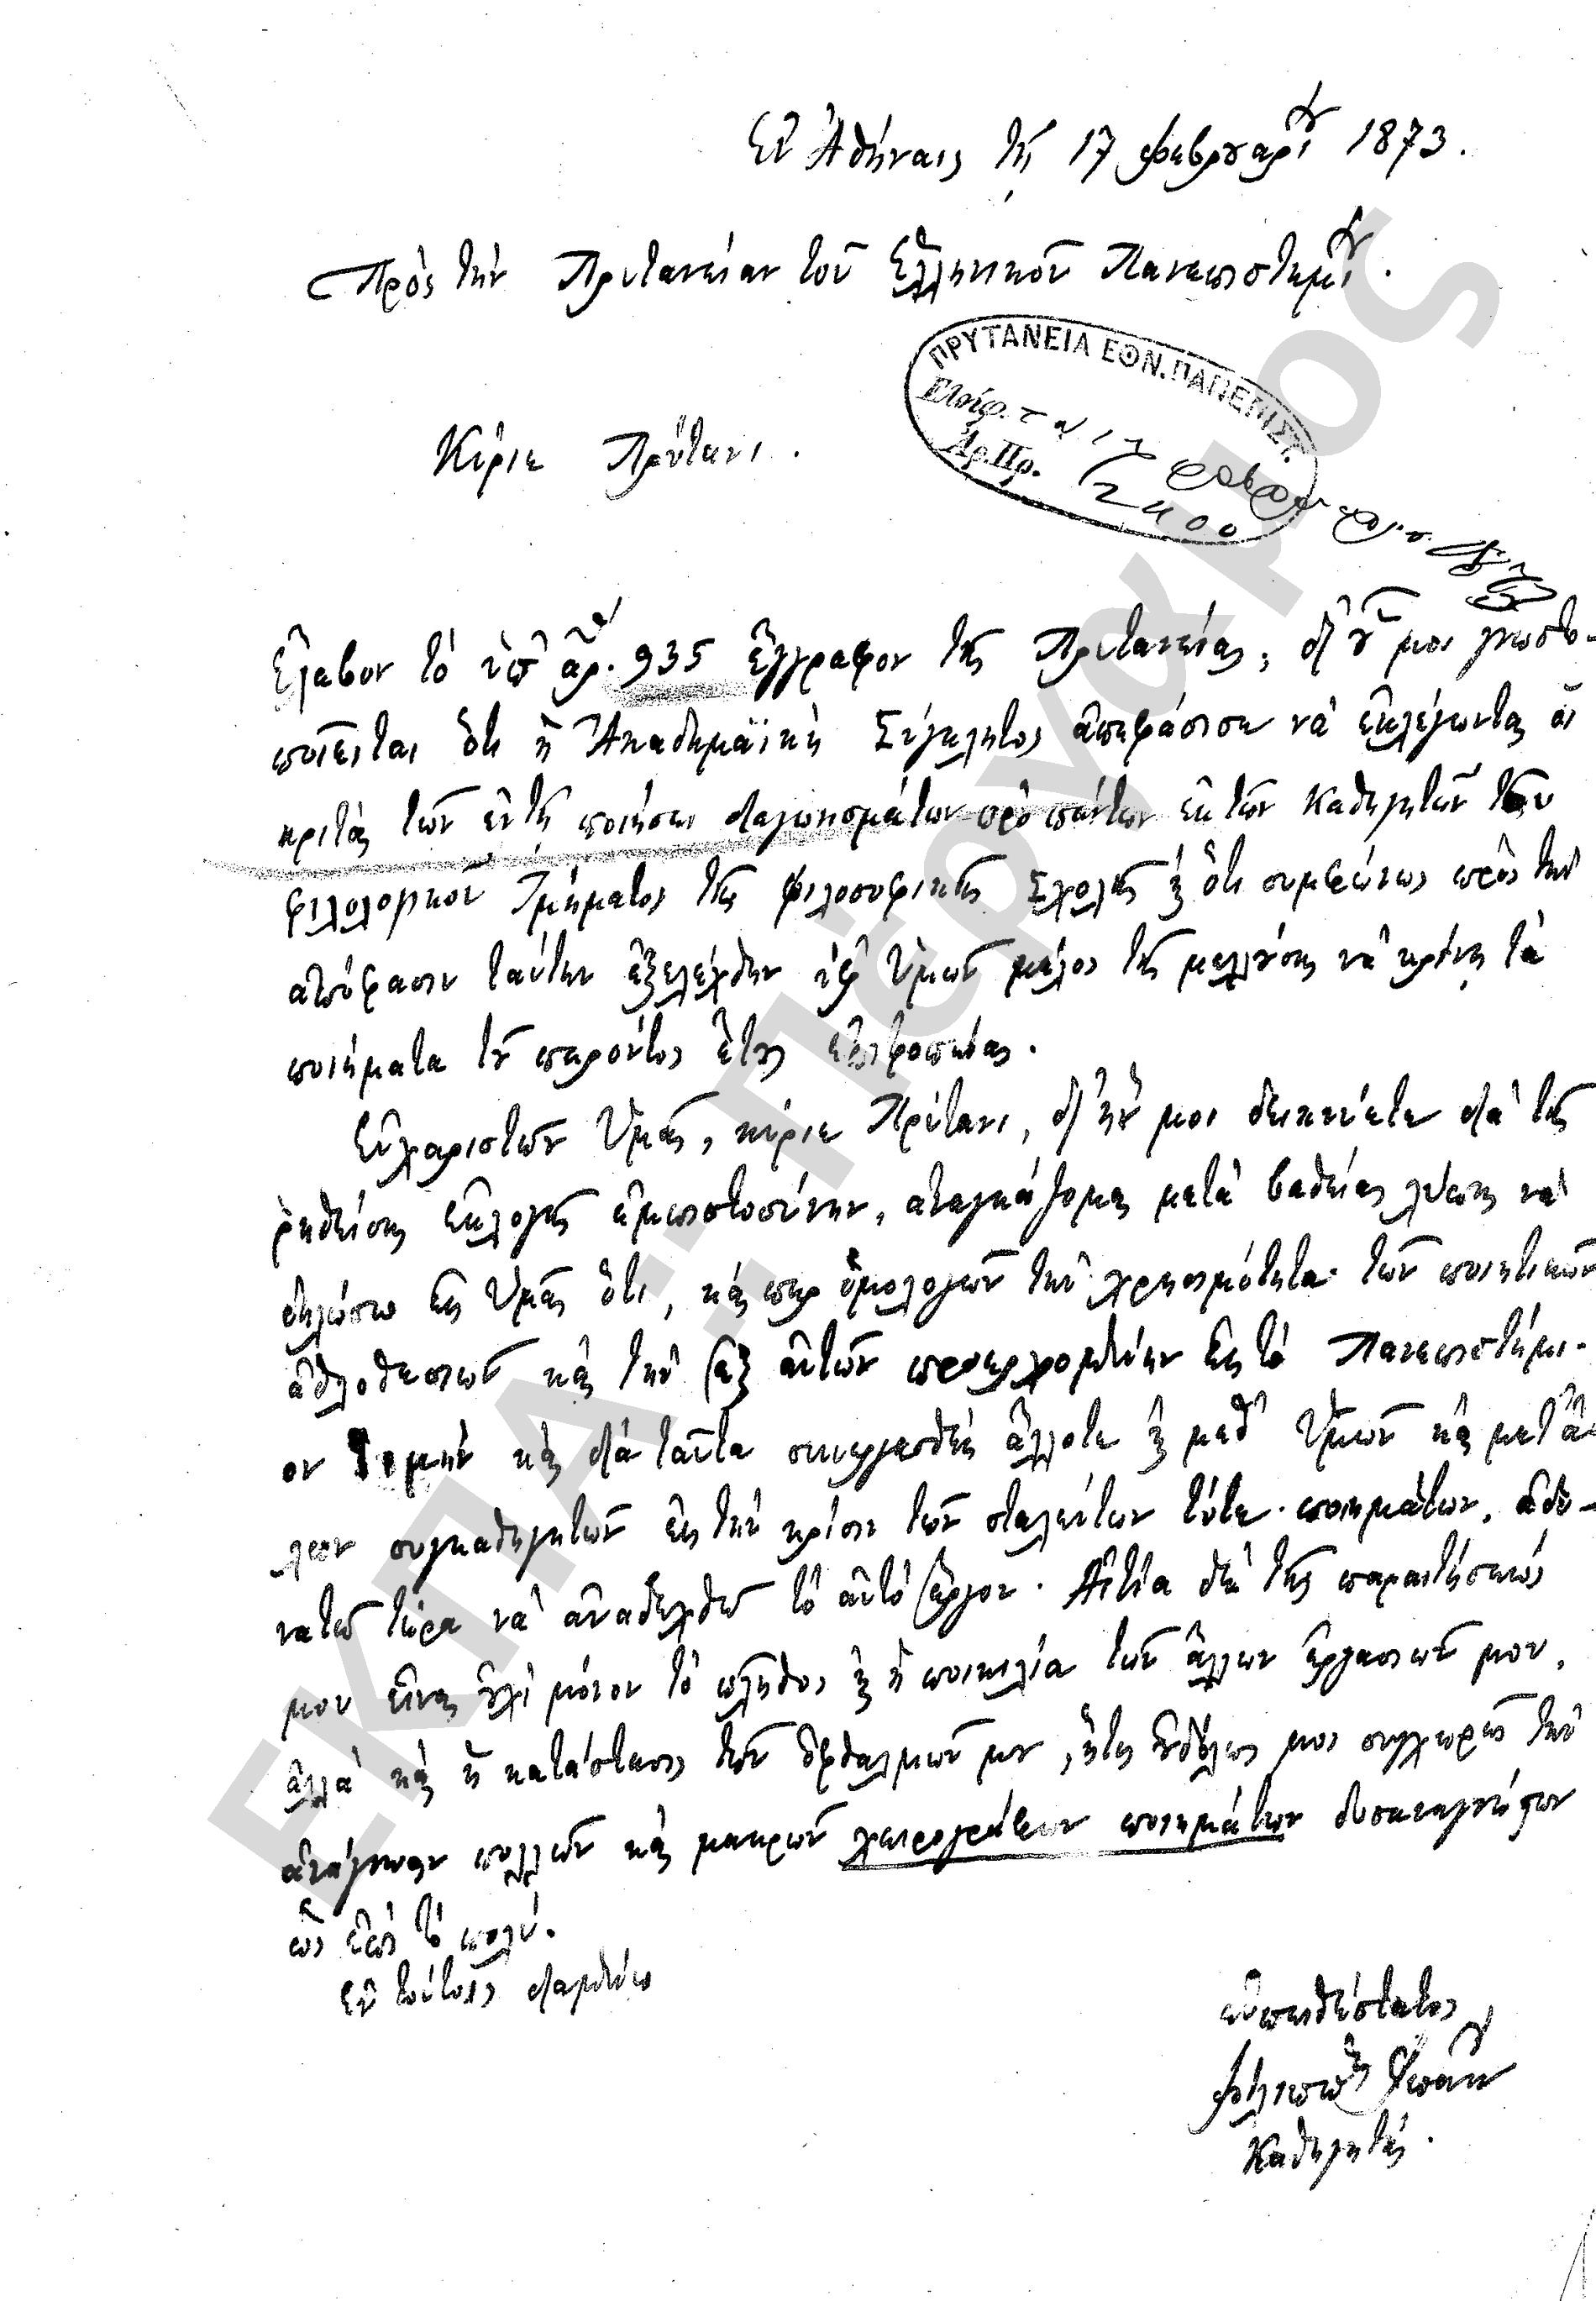 Ἐν Ἀθήναις τῇ 17 Φεβρουαρίου 1873.
Πρὸς τὴν Πρυτανείαν τοῦ Ἑλληνικοῦ Πανεπιστημίου.
ΠΡΥΤΑΝΕΙΑ ΕΘΝ. ΠΑΝΕΠΙΣΤ.
Ἀρ. Πρ. 2400
Κύριε Πρύτανι.
Ἔλαβον τὸ ὑπ' ἀρ. 935 ἔγγραφον τῆς Πρυτανείας, δι' οὗ μοι γνωστο-
ποιεῖται ὅτι ἡ Ἀκαδημαϊκὴ Σύγκλητος ἀπεφάσισε νὰ ἐκλέγωνται οἱ
κριταὶ τῶν ἐν τῇ ποιήσει διαγωνισμάτων πρὸ πάντων ἐκ τῶν καθηγητῶν τοῦ
φιλολογικοῦ Τμήματος τῆς φιλοσοφικῆς Σχολῆς καὶ ὅτι συμφώνως πρὸς τὴν
ἀπόφασιν ταύτην ἐξελέχθην ὑφ' Ὑμῶν μέλος τῆς μελλούσης νὰ κρίνῃ τὰ
ποιήματα τοῦ παρόντος ἔτους ἐπιτροπείας.
Εὐχαριστῶν Ὑμᾶς, κύριε Πρύτανι, δι' ἣν μοι δεικνύετε διὰ τῆς
ῥηθείσης ἐκλογῆς ἐμπιστοσύνην, ἀναγκάζομαι μετὰ βαθείας λύπης νὰ
δηλώσω εἰς Ὑμᾶς ὅτι, καίπερ ὁμολογῶν τὴν χρησιμότητα τῶν ποιητικῶν
ἀθλοθεσιῶν καὶ τὴν ἐξ αὐτῶν προερχομένην εἰς τὸ Πανεπιστήμι-
ον τιμὴν καὶ διὰ ταῦτα συνεργασθεὶς ἄλλοτε καὶ μεθ' Ὑμῶν καὶ μετ' ἄλ-
λων συγκαθηγητῶν εἰς τὴν κρίσιν τῶν σταλέντων τότε ποιημάτων, ἀδυ-
νατῶ τώρα νὰ ἀναδεχθῶ τὸ αὐτὸ ἔργον. Αἰτία δὲ τῆς παραιτήσεώς
μου εἶναι οὐχὶ μόνον τὸ πλῆθος καὶ ἡ ποικιλία τῶν ἄλλων ἐργασιῶν μου,
ἀλλὰ καὶ ἡ κατάστασις τῶν ὀφθαλμῶν μου, ἥτις οὐδόλως μοι συγχωρεῖ τὴν
ἀνάγνωσιν πολλῶν καὶ μακρῶν χειρογράφων ποιημάτων δυσαναγνώστων
ὡς ἐπὶ τὸ πολύ.
Ἐν τούτοις διαμένω
εὐπειθέστατος
Φίλιππος Ἰωάννου
Καθηγητής.
ΕΚΠΑ - Πέργαμος